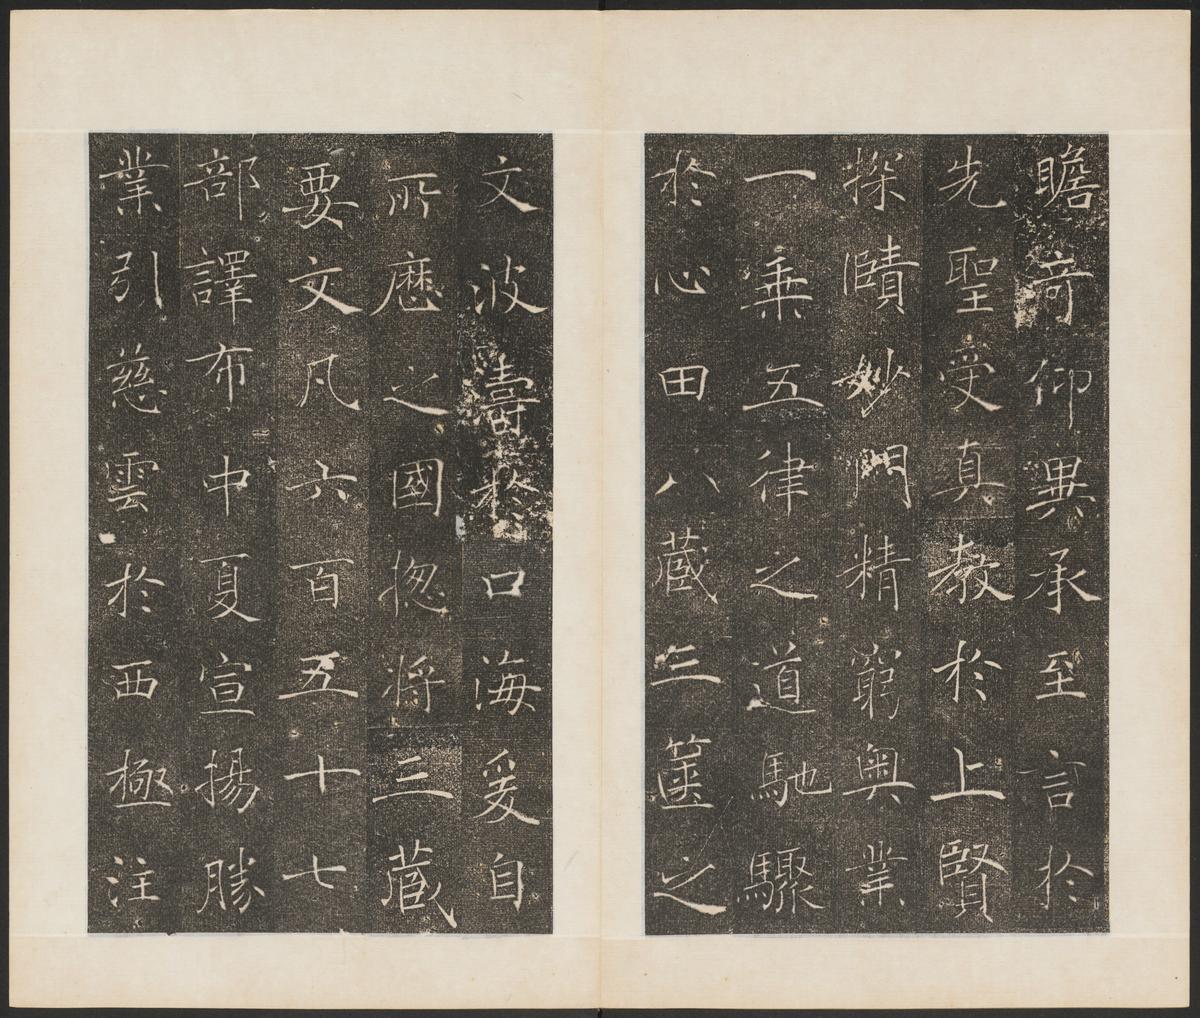 瞻奇仰異承至言於
先聖受真教於上賢
探賾妙門精窮奥業
一乗五律之道馳驟
於心田八蔵三篋之
文波濤於口海爰自
所歷之國揔將三蔵
要文凡六百五十七
部譯布中夏宣揚勝
業引慈雲於西極注